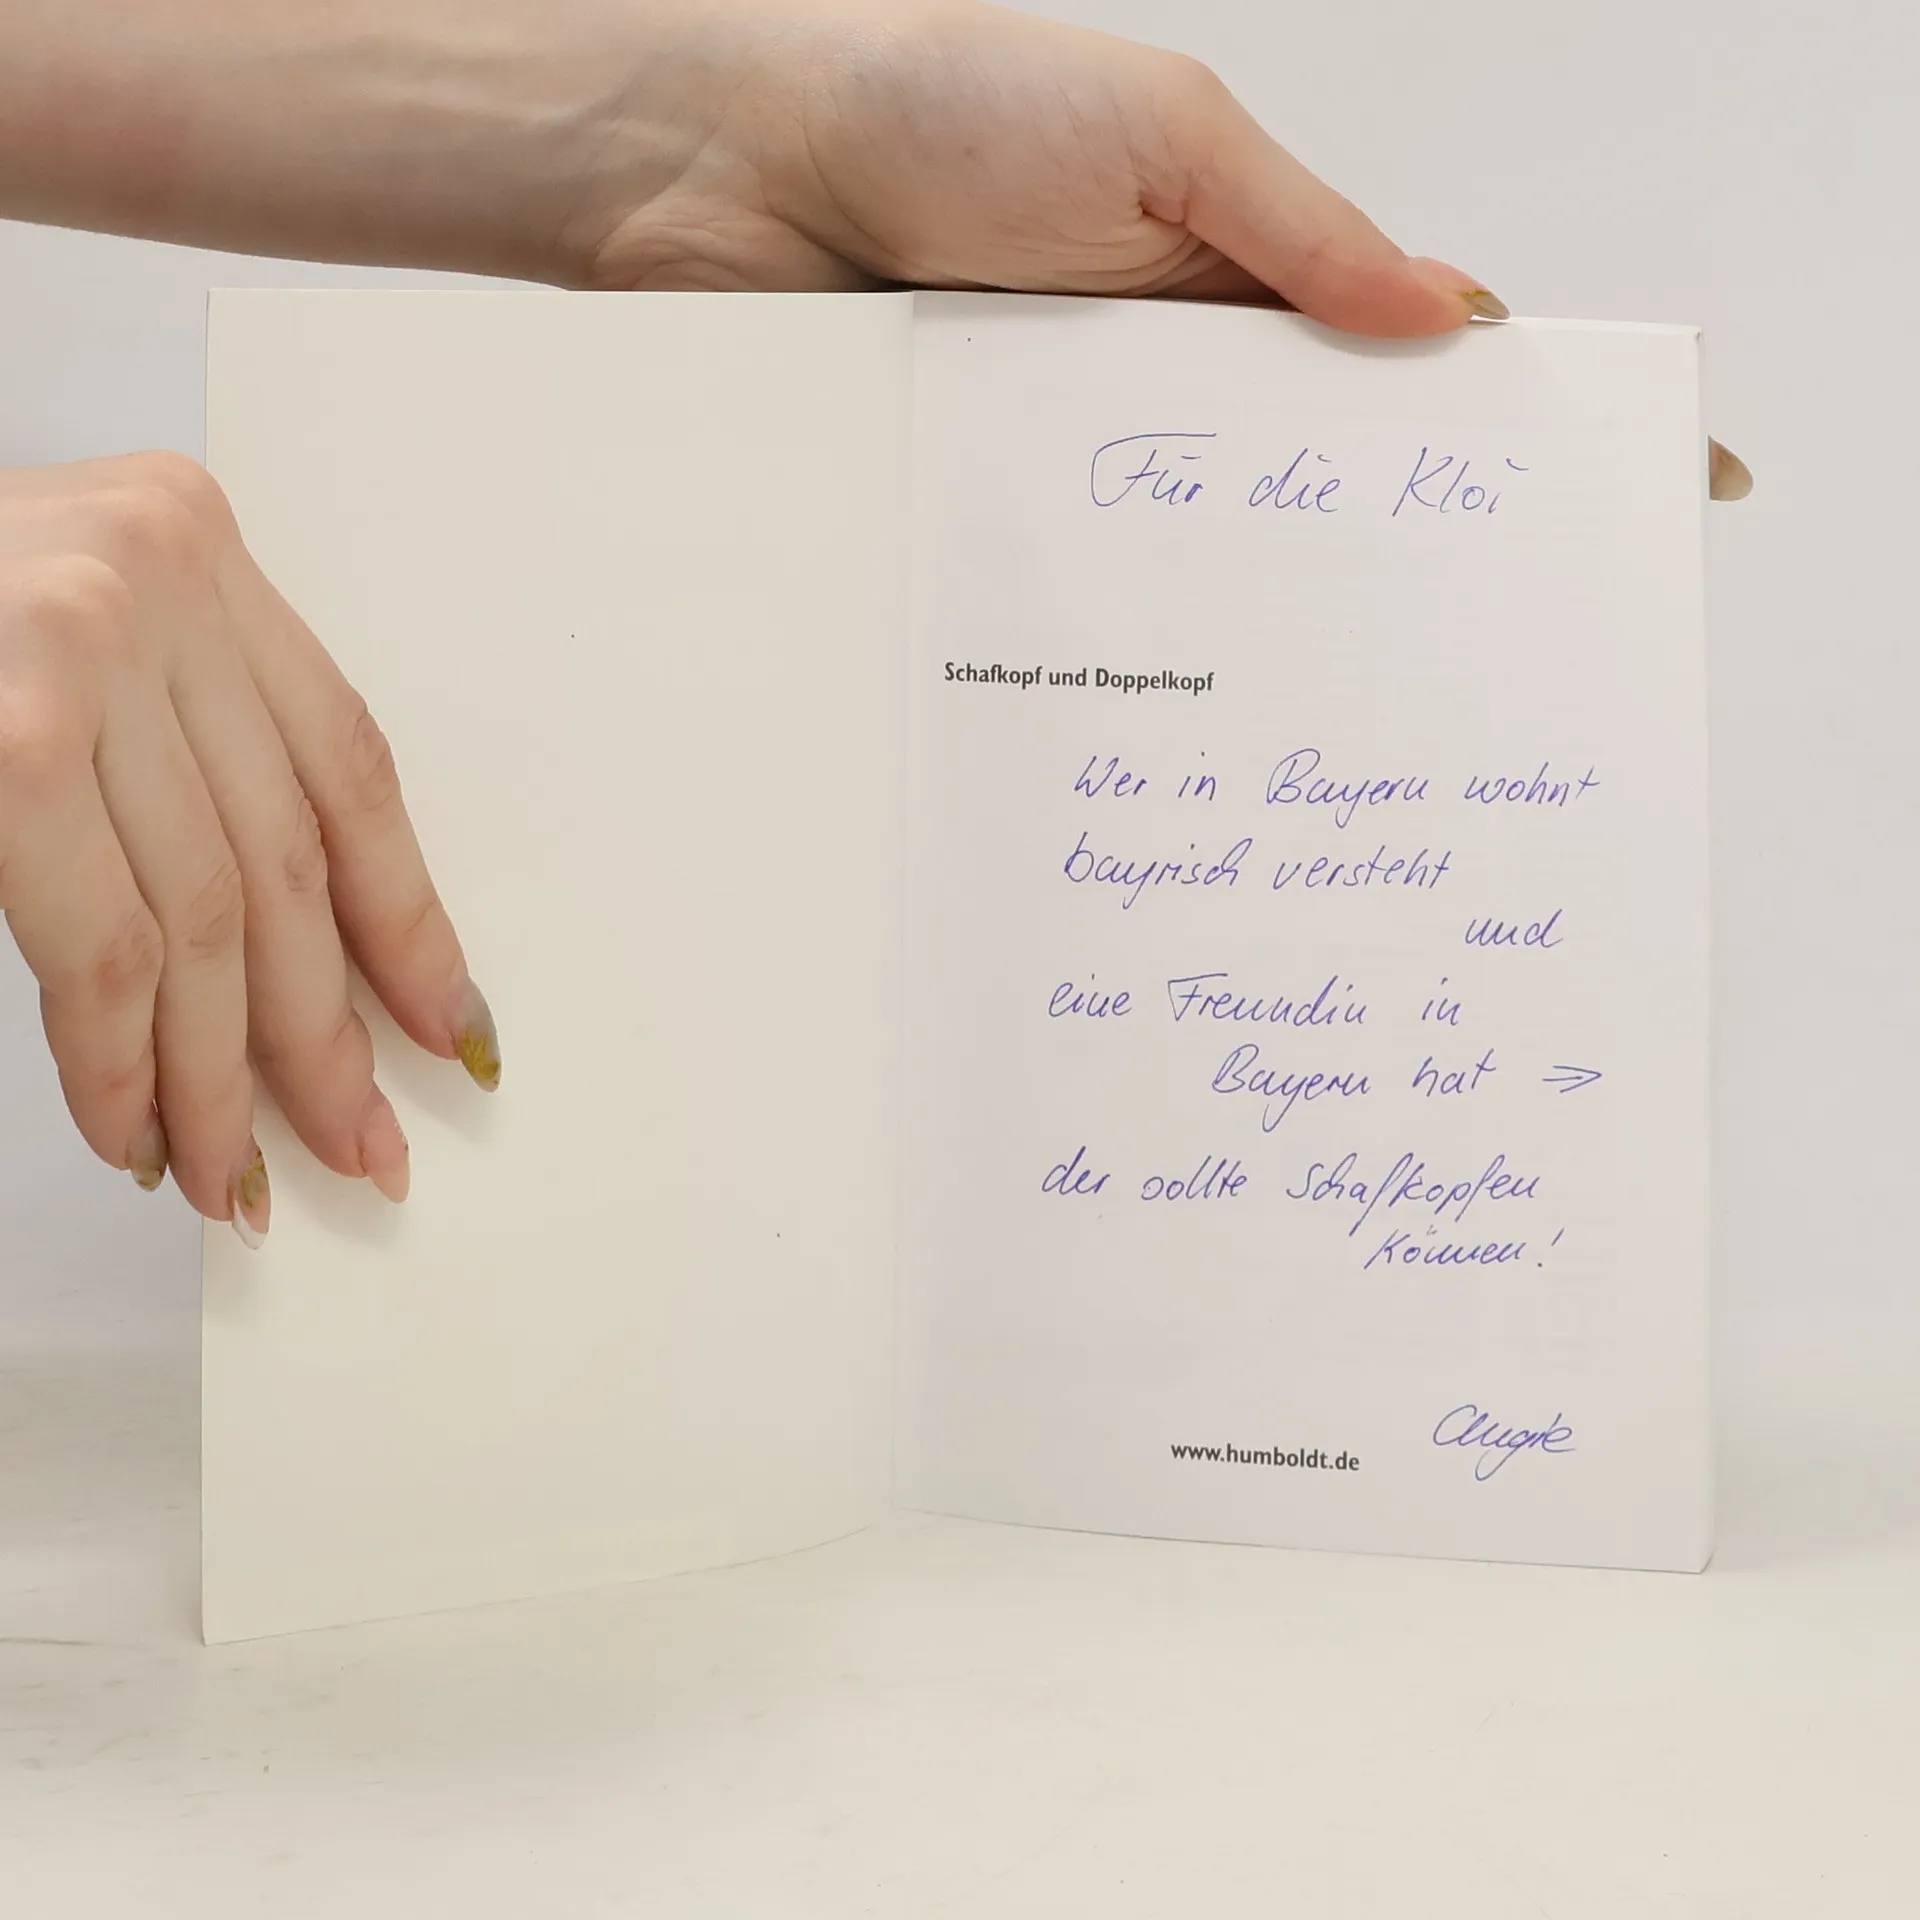 Für die Kloi
Schafkopf und Doppelkopf
Wer in Bayern wohnt
bayrisch versteht
und
eine Freundin in
Bayern hat =>
der sollte Schafkopfen
können!
Angie
www.humboldt.de